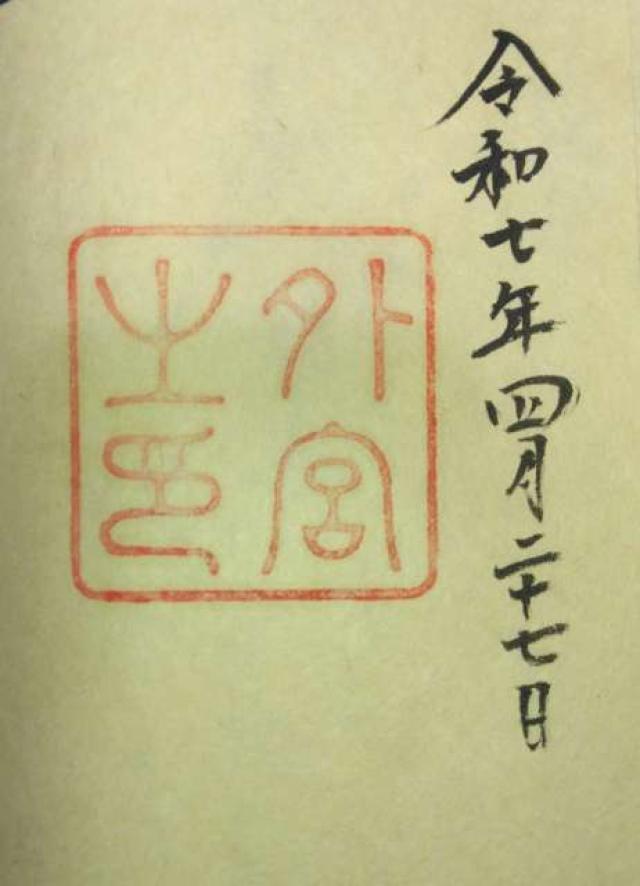 令和七年四月二十七日
外宮
之印